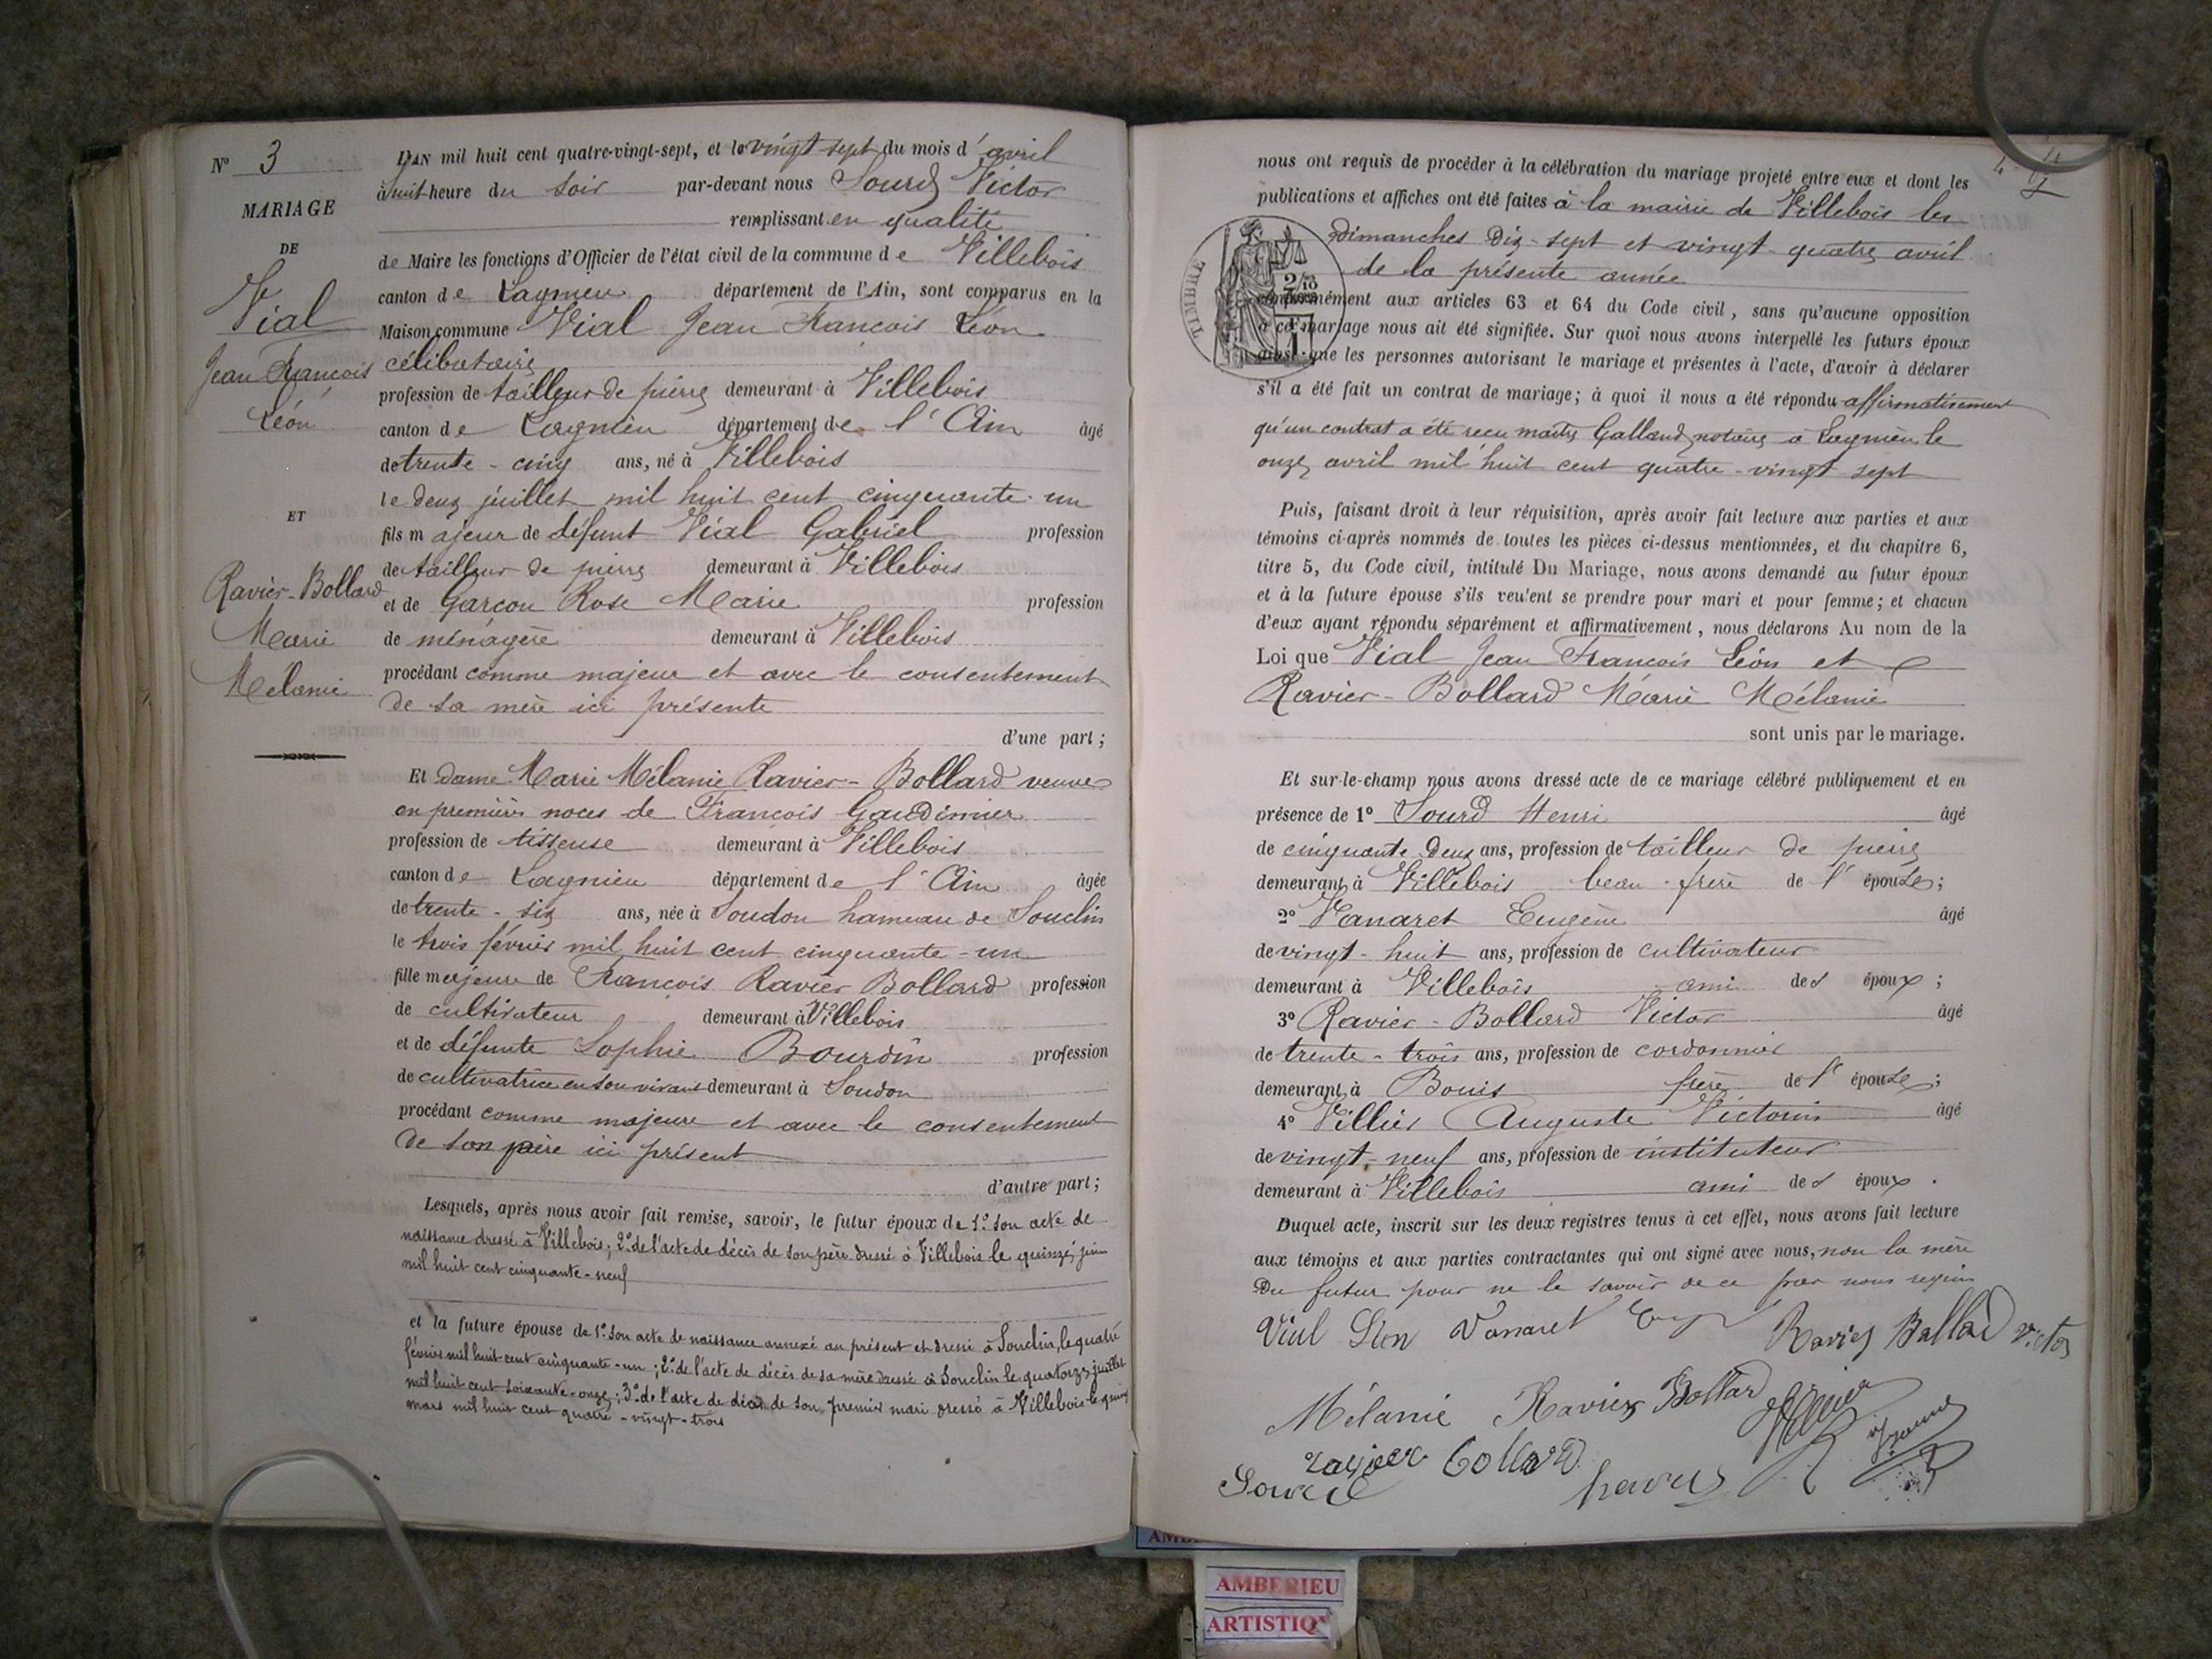 N° 3
MARIAGE
DE
Vial
Jean François
Léon
ET
Ravier-Bollard
Marie
Mélanie
L'AN mil huit cent quatre-vingt-sept, et le vingt sept du mois d'avril
à huit heure du soir par-devant nous Sourd Victor
remplissant en qualité
de Maire les fonctions d'Officier de l'état civil de la commune de Villebois
canton de Lagnieu département de l'Ain, sont comparus en la
Maison commune Vial Jean François Léon
célibataire
profession de tailleur de pierre demeurant à Villebois
canton de Lagnieu département de l'Ain âgé
de trente-cinq ans, né à Villebois
le deux juillet mil huit cent cinquante-un
fils majeur de défunt Vial Gabriel profession
de tailleur de pierre demeurant à Villebois
et de Garçon Rose Marie profession
de ménagère demeurant à Villebois
procédant comme majeur et avec le consentement
de sa mère ici présente
d'une part;
Et dame Marie Mélanie Ravier-Bollard veuve
en premières noces de François Gaudimier
profession de tisseuse demeurant à Villebois
canton de Lagnieu département de l'Ain âgée
de trente-six ans, née à Soudon hameau de Souclin
le trois février mil huit cent cinquante-un
fille majeure de François Ravier Bollard profession
de cultivateur demeurant à Villebois
et de défunte Sophie Bourdin profession
de cultivatrice en son vivant demeurant à Soudon
procédant comme majeure et avec le consentement
de son père ici présent
d'autre part;
Lesquels, après nous avoir fait remise, savoir, le futur époux de 1° son acte de
naissance dressé à Villebois; 2° de l'acte de décès de son père dressé à Villebois le quinze juin
mil huit cent cinquante-neuf
et la future épouse de 1° son acte de naissance annexé au présent et dressé à Souclin, le quatre
février mil huit cent cinquante-un; 2° de l'acte de décès de sa mère dressé à Souclin le quatorze juillet
mil huit cent soixante-onze; 3° de l'acte de décès de son premier mari dressé à Villebois le quinze
mars mil huit cent quatre-vingt-trois
nous ont requis de procéder à la célébration du mariage projeté entre eux et dont les
publications et affiches ont été faites à la mairie de Villebois les
dimanches dix-sept et vingt-quatre avril
de la présente année
TIMBRE
conformément aux articles 63 et 64 du Code civil, sans qu'aucune opposition
à ce mariage nous ait été signifiée. Sur quoi nous avons interpellé les futurs époux
ainsi que les personnes autorisant le mariage et présentes à l'acte, d'avoir à déclarer
s'il a été fait un contrat de mariage; à quoi il nous a été répondu affirmativement
qu'un contrat a été reçu maître Galland notaire à Lagnieu le
onze avril mil huit cent quatre-vingt-sept
Puis, faisant droit à leur réquisition, après avoir fait lecture aux parties et aux
témoins ci-après nommés de toutes les pièces ci-dessus mentionnées, et du chapitre 6,
titre 5, du Code civil, intitulé Du Mariage, nous avons demandé au futur époux
et à la future épouse s'ils veulent se prendre pour mari et pour femme; et chacun
d'eux ayant répondu séparément et affirmativement, nous déclarons Au nom de la
Loi que Vial Jean François Léon et
Ravier-Bollard Marie Mélanie
sont unis par le mariage.
Et sur-le-champ nous avons dressé acte de ce mariage célébré publiquement et en
présence de 1° Sourd Henri âgé
de cinquante-deux ans, profession de tailleur de pierre
demeurant à Villebois beau-frère de l'épouse;
2° Vanaret Eugène âgé
de vingt-huit ans, profession de cultivateur
demeurant à Villebois ami des époux;
3° Ravier-Bollard Victor âgé
de trente-trois ans, profession de cordonnier
demeurant à Bouis frère de l'épouse;
4° Villier Auguste Victorin âgé
de vingt-neuf ans, profession de instituteur
demeurant à Villebois ami des époux.
Duquel acte, inscrit sur les deux registres tenus à cet effet, nous avons fait lecture
aux témoins et aux parties contractantes qui ont signé avec nous, non la mère
du futur pour ne le savoir de ce par nous requis
Vial Léon Vanaret Ravier Bollard Victor
Mélanie Ravier Bollard
ravier bollard
Sourd
AMBERIEU
ARTISTIQ